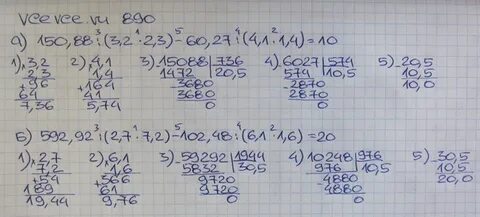 vcevce.ru 890
а) 150,88:(3,2·2,3)-60,27:(4,1·1,4)=10
1) 3,2 2) 4,1 3) 15088 736 4) 6027 574 5) 20,5
2,3 1,4 1472 20,5 574 10,5 10,5
96 164 3680 2870 10,0
64 41 3680 2870
7,36 5,74 0 0
Б) 592,92:(2,7·7,2)-102,48:(6,1·1,6)=20
1) 2,7 2) 6,1 3) 59292 1944 4) 10248 976 5) 30,5
7,2 1,6 5832 30,5 976 10,5 10,5
54 366 9720 4880 20,0
189 61 9720 4880
19,44 9,76 0 0